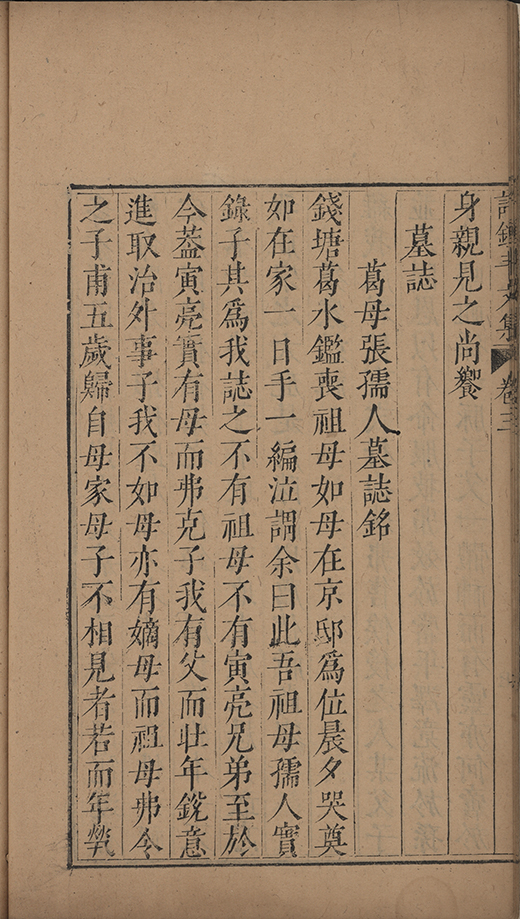 許鍾斗文集 卷三
身親見之尚饗
墓誌
葛母張孺人墓誌銘
錢塘葛水鑑喪祖母如母在京邸為位晨夕哭奠
如在家一日手一編泣謂余曰此吾祖母孺人實
錄子其為我誌之不有祖母不有寅亮兄弟至於
今葢寅亮實有母而弗克子我有父而壯年銳意
進取治外事子我不如母亦有嫡母而祖母弗令
之子甫五歲歸自母家母子不相見者若而年煢